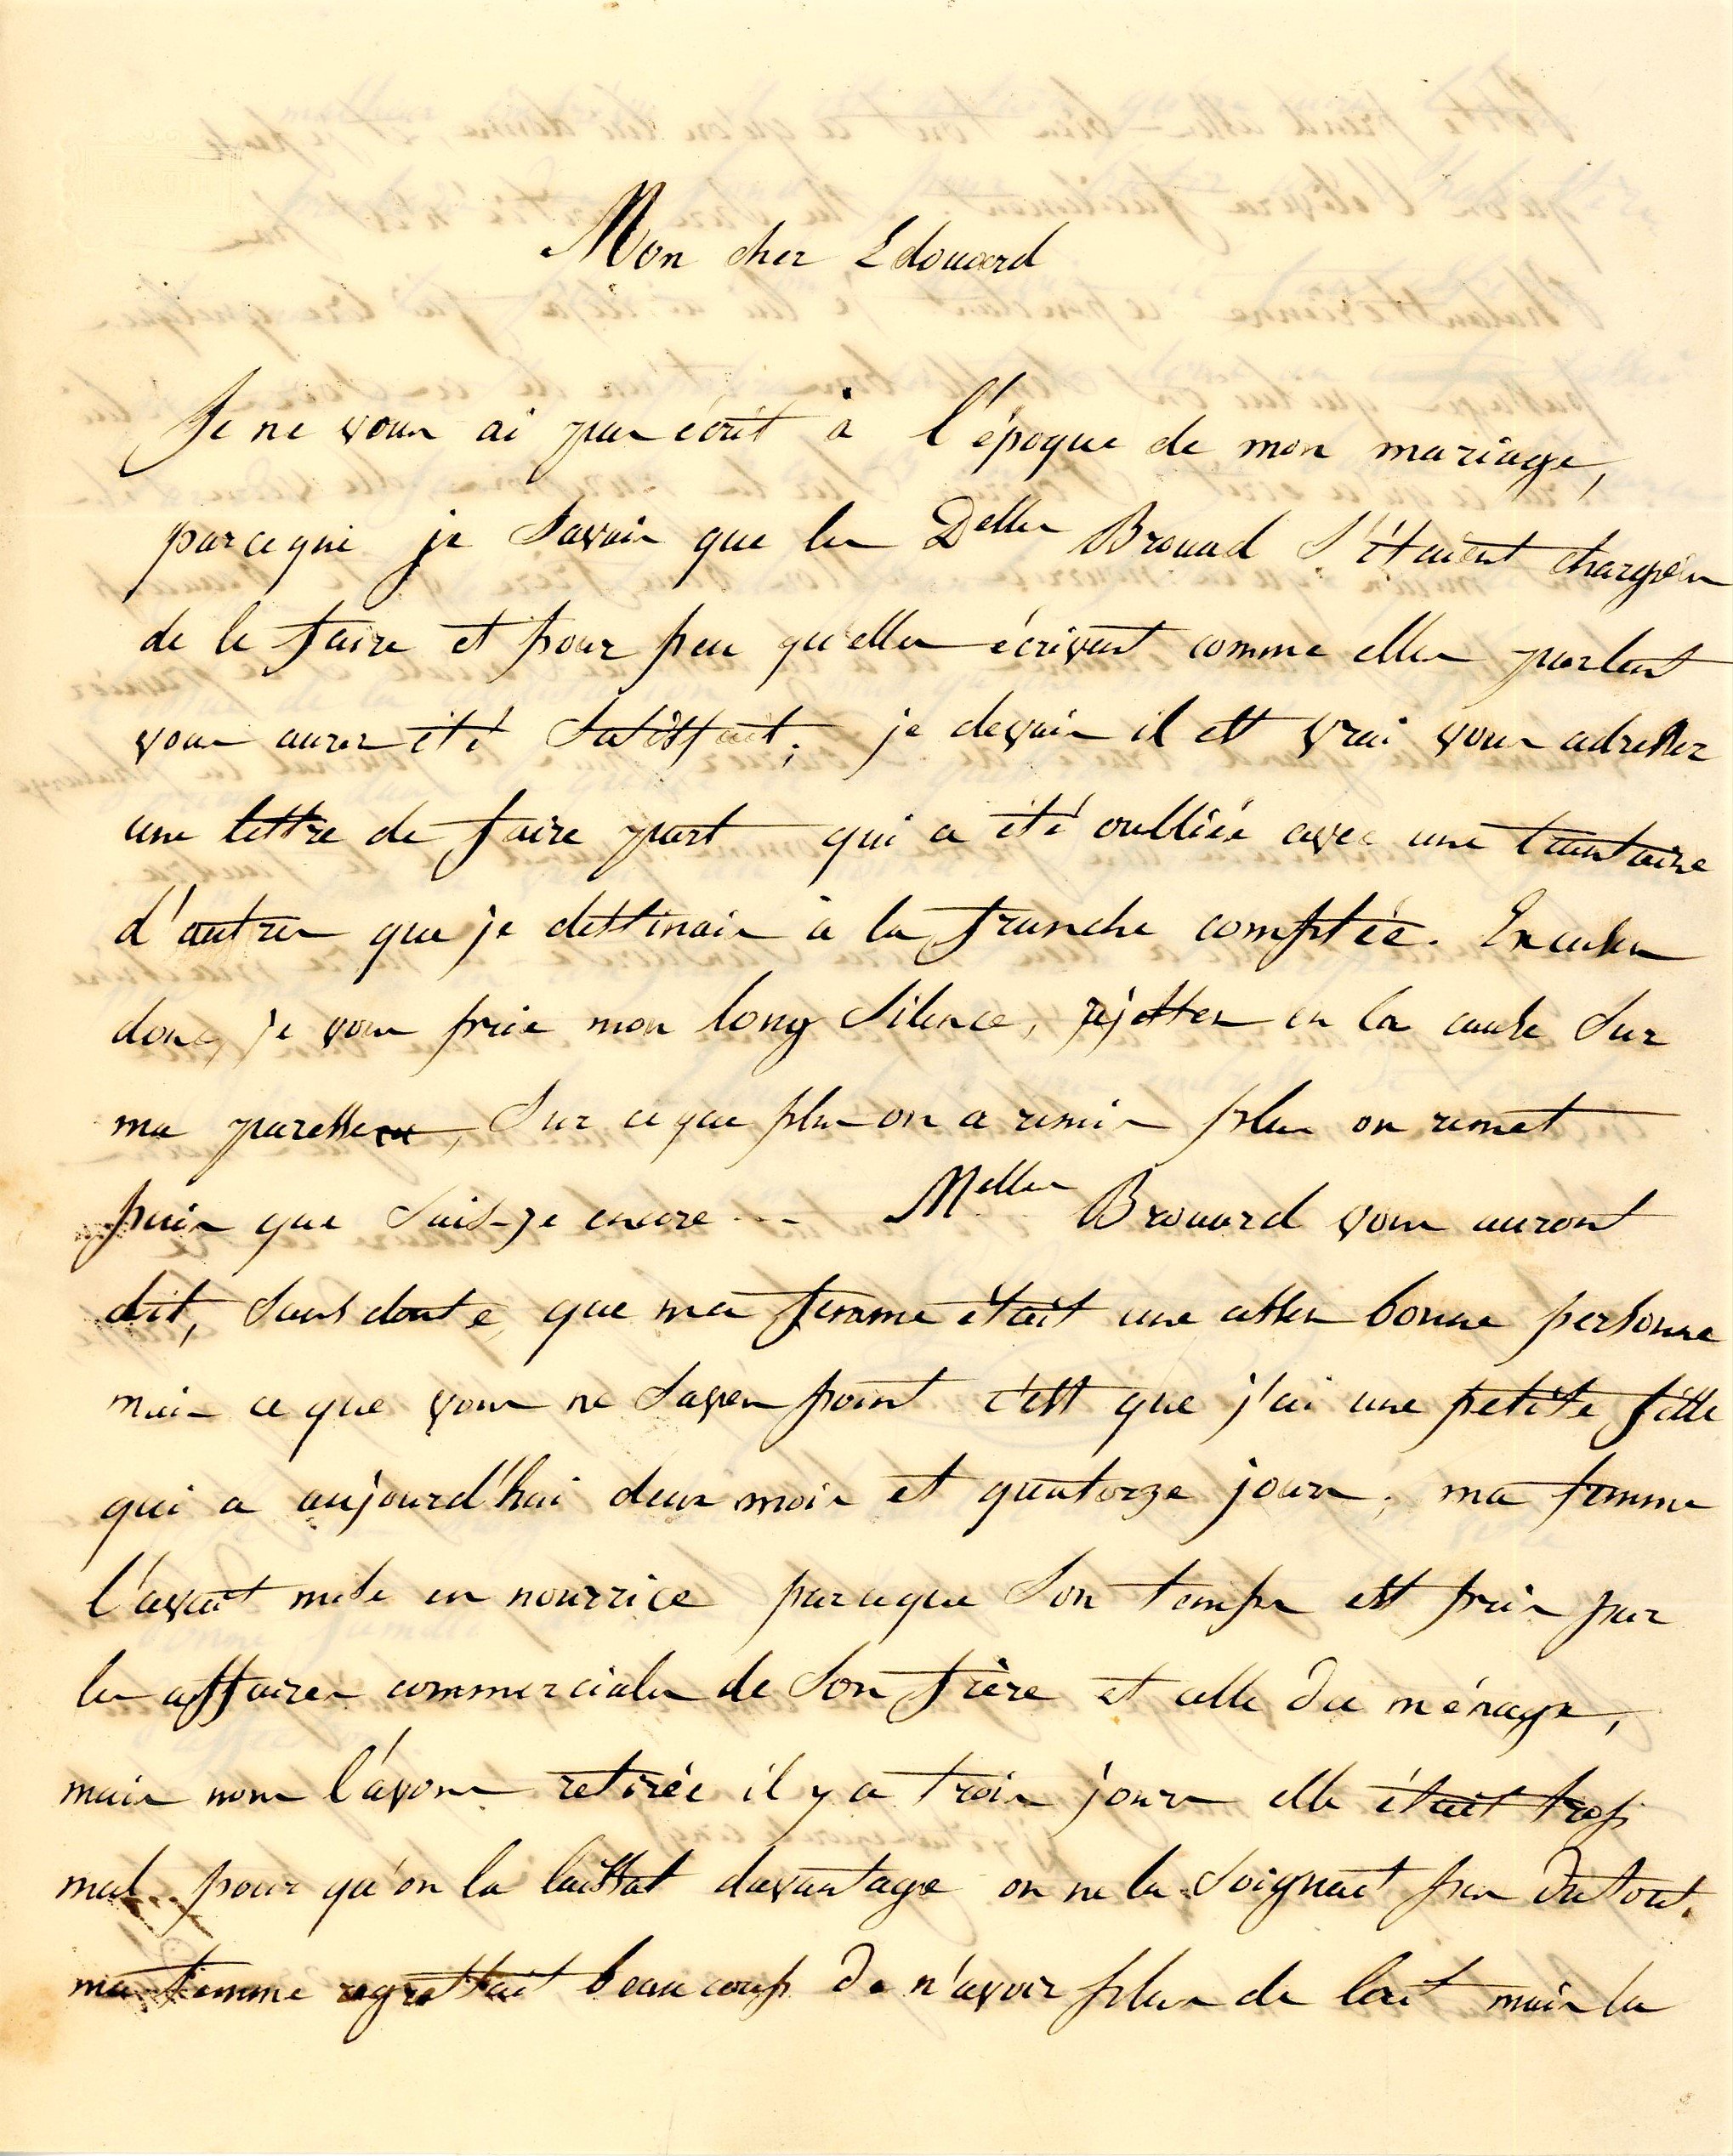 Mon cher Edouard
Je ne vous ai pas écrit à l'époque de mon mariage,
parceque je savais que les Delles Brouard s'étaient chargées
de le faire et pour peu qu'elles écrivent comme elles parlent
vous aurez été satisfait; je devais il est vrai vous adresser
une lettre de faire part qui a été oubliée avec une trentaine
d'autres que je destinais à la franche comptée. Excusez
donc, je vous prie mon long silence, rejettez en la cause sur
ma paresse, sur ce que plus on a remis plus on remet
puis que sais-je encore... Melles Brouard vous auront
dit, sans doute, que ma femme était une assez bonne personne
mais ce que vous ne savez point c'est que j'ai une petite fille
qui a aujourd'hui deux mois et quatorze jours; ma femme
l'avait mise en nourrice parceque son temps est pris par
les affaires commerciales de son frère et celle du ménage,
mais nous l'avons retirée il y a trois jours elle était trop
mal pour qu'on la laissat davantage on ne la soignait pas du tout.
ma femme regrettait beaucoup de n'avoir plus de lait mais la